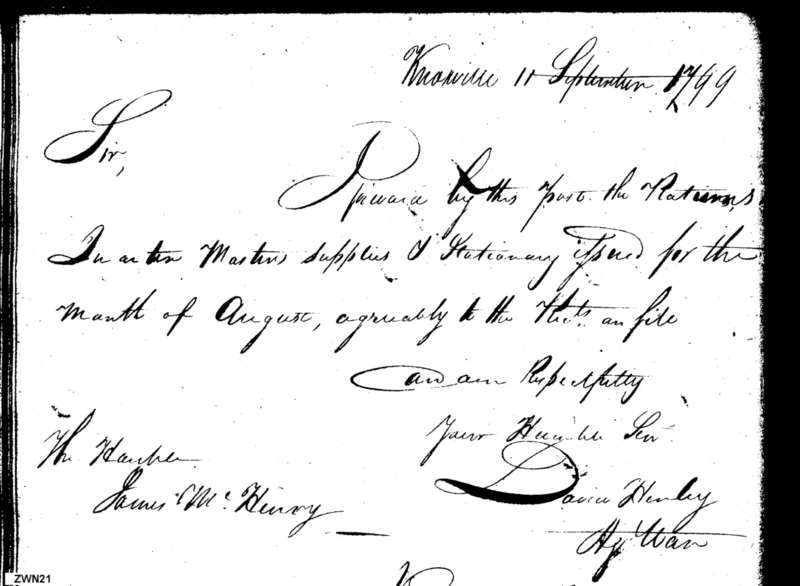 Knoxville 11 September 1799
Sir,
I forward by this Post the Returns,
Quarter Masters Supplies & Stationary issued for the
Month of August, agreeably to the on file
and am Respectfully
Your Humble Ser
The Honble
David Henley
James Mc. Henry
Ag War
ZWN21